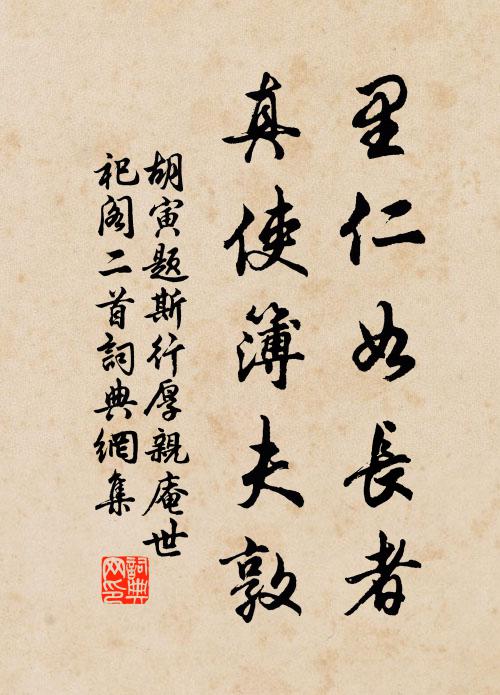 里仁如長者
真使簿夫敦
胡寅題斯行厚親庵世
祀閣二首詞典網集
詞典网印